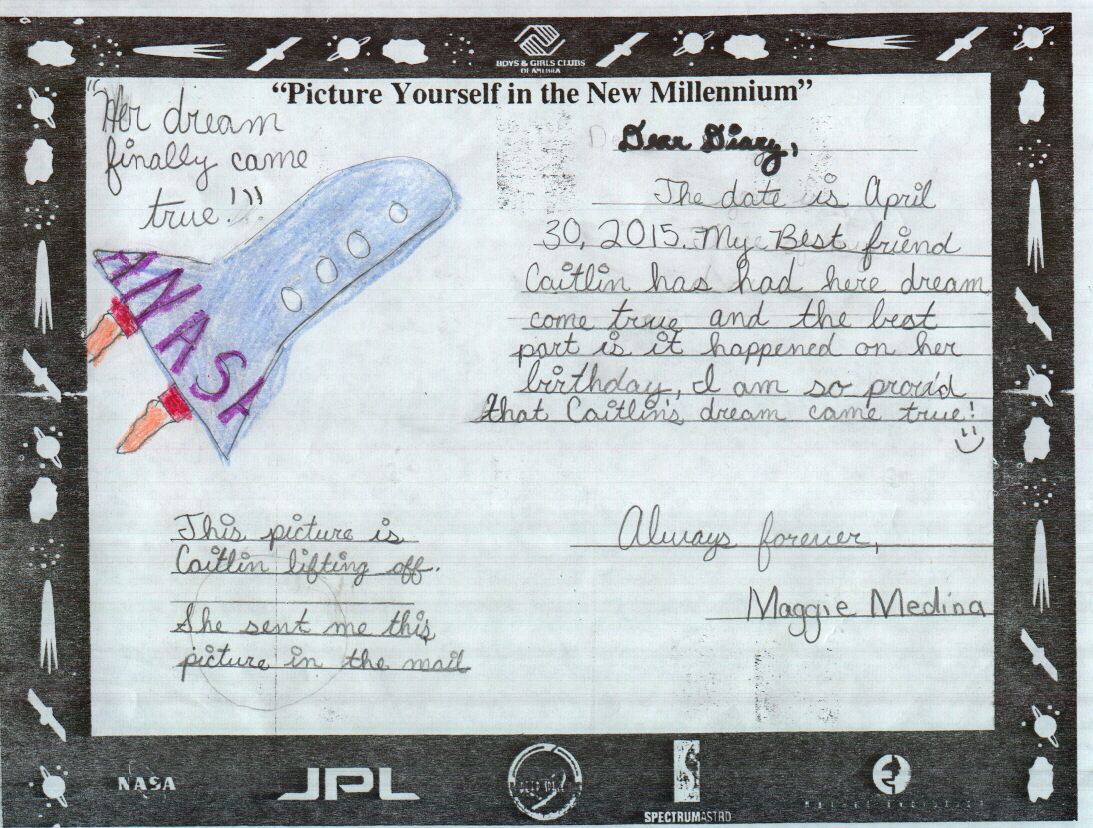 BOYS & GIRLS CLUBS
OF AMERICA
"Picture Yourself in the New Millennium"
"Her dream
finally came
true!!!
NASA
Dear Diary,
The date is April
30, 2015. My Best friend
Caitlin has had here dream
come true and the best
part is it happened on her
birthday, I am so proud
that Caitlin's dream came true!
Always forever,
Maggie Medina
This picture is
Caitlin lifting off.
She sent me this
picture in the mail
NASA
JPL
SPECTRUMASTRO